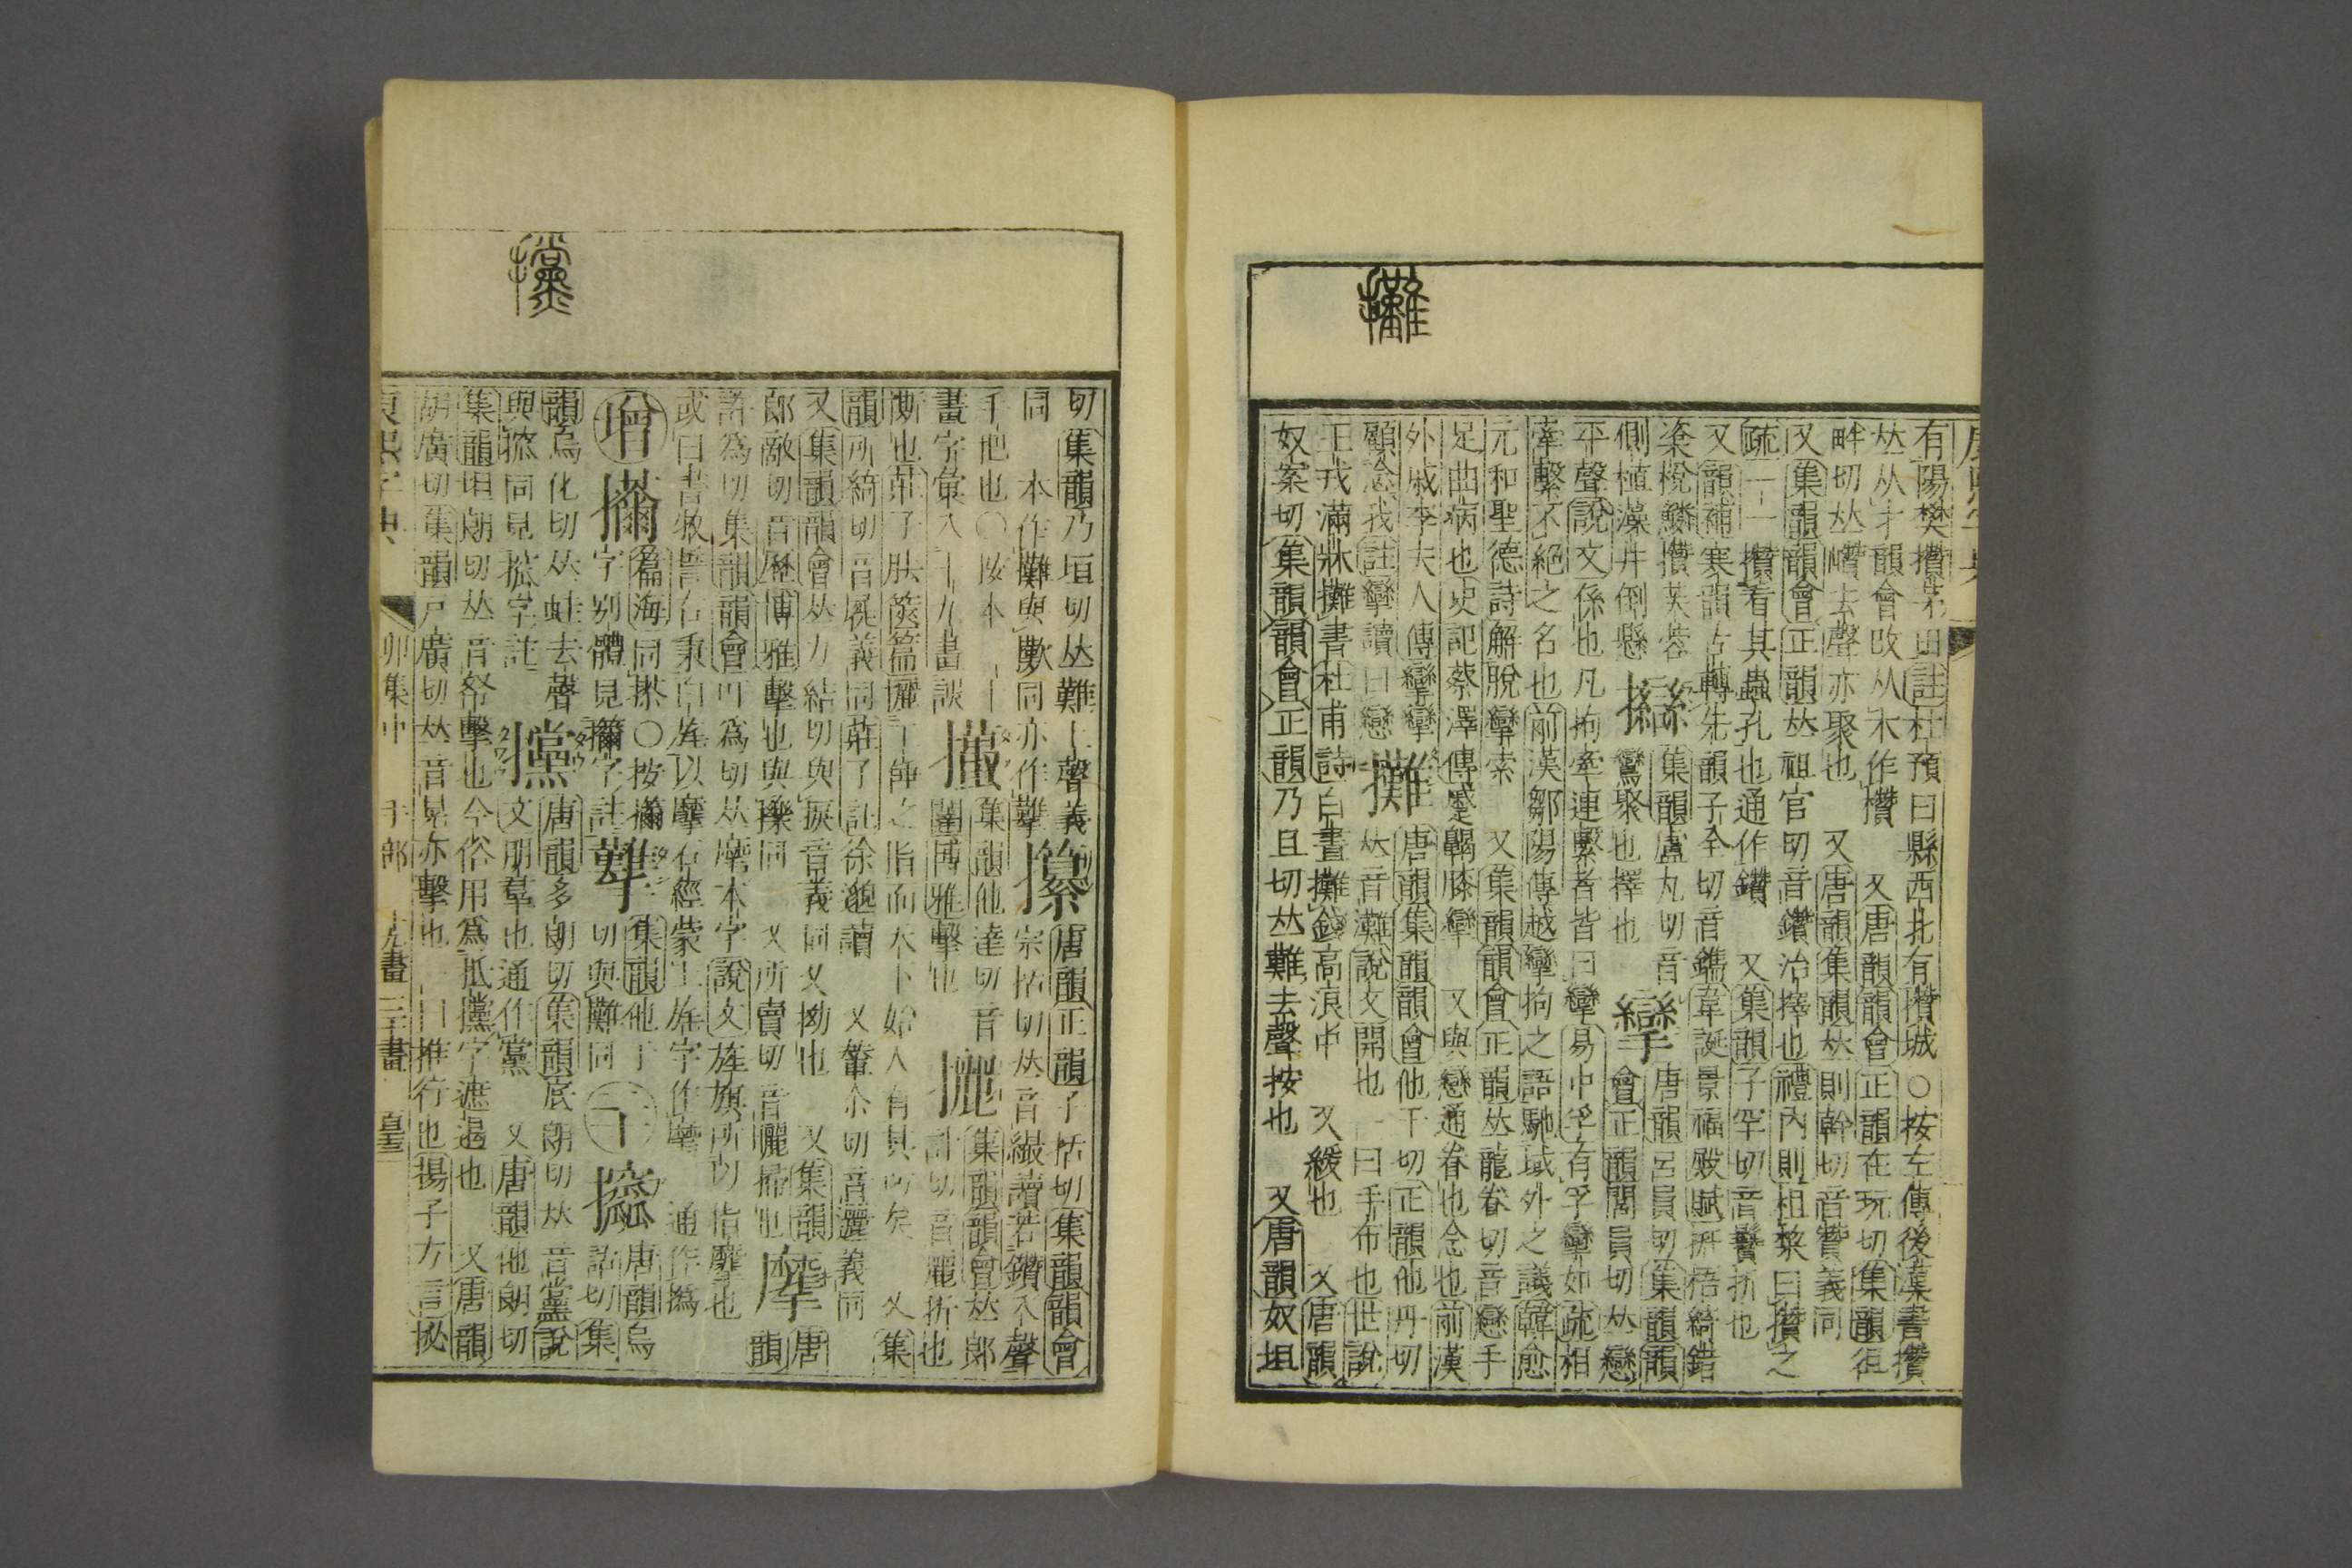 攤
有陽樊攢茅田註杜預曰縣西北有攢城〇按左傳後漢書攢
𠀤从才韻會攺从木作欑 又唐韻韻會正韻在玩切集韻徂
畔切𠀤巑去聲亦聚也 又唐韻集韻𠀤則幹切音贊義同
又集韻韻會正韻𠀤祖官切音鑽治擇也禮內則柤棃曰攢之
疏一一攢看其蟲孔也通作鑽 又集韻子罕切音鬢折也
又韻補寒韻古轉先韻子全切音鐫韋誕景福殿賦 梧綺錯
楶梲鱗攢芙蓉
側植藻井倒懸
㩻
集韻盧丸切音
鸞聚也擇也
攣
唐韻呂員切集韻韻
會正韻閭員切𠀤戀
平聲說文係也凡拘牽連繫者皆曰攣易中孚有孚攣如疏相
牽繫不絕之名也前漢鄒陽傳越攣拘之語馳域外之議韓愈
元和聖德詩解脫攣索 又集韻韻會正韻𠀤龍眷切音戀手
足曲病也史記蔡澤傳蹙齃膝攣 又與戀通眷也念也前漢
外戚李夫人傳攣攣
顧念我註攣讀曰戀
攤
唐韻集韻韻會他干切正韻他丹切
𠀤音灘說文開也一曰手布也世說
王戎滿牀攤書杜甫詩白晝攤錢高浪中 又緩也 又唐韻
奴案切集韻韻會正韻乃旦切𠀤難去聲按也 又唐韻奴坦
攩
切集韻乃垣切𠀤難上聲義
同 本作攤與歎同亦作㔁
纂
唐韻正韻子括切集韻韻會
宗括切𠀤音纉讀若鑽入聲
手把也〇按本
畫字彙入十九畫誤
集韻他達切音
闥博雅擊也
攦
集韻韻會𠀤郎
計切音麗折也
撕也莊子胠篋篇攦工倕之指而天下始人有其巧矣 又集
韻所綺切音屣義同莊子註徐邈讀 又輦尒切音邐義同
又集韻韻會𠀤力結切與捩音義同又拗也 又集韻
郎敵切音歷博雅擊也與擽同 又所賣切音灑掃也
𪎮
唐
韻
許為切集韻韻會吁為切𠀤麾本字說文旌旗所以指麾也
或曰書牧誓右秉白旄以麾石經蒙上旄字作𪎮 通作撝
增
㩶
篇海同㩋〇按㩶
字別體見㩶字註
㔁
集韻他干
切與攤同
二十
攨
唐韻烏
話切集
韻烏化切𠀤蛙去聲
與搲同見搲字註
攩
唐韻多朗切集韻底朗切𠀤音黨說
文朋羣也通作黨 又唐韻他朗切
集韻坦朗切𠀤音帑擊也今俗用爲抵攩字遮遏也 又唐韻
胡廣切集韻戸廣切𠀤音晃亦擊也 一曰推行也揚子方言㧙
康熙字典 卯集中 手部 十九畫 二十畫